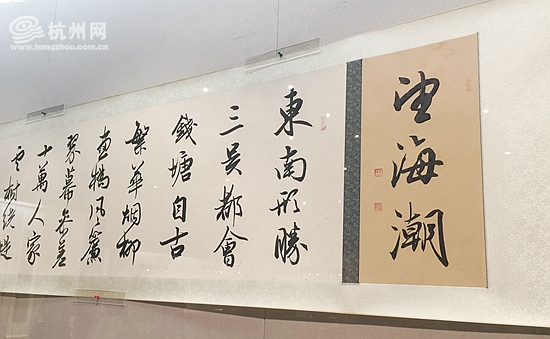 杭州网
www.hangzhou.com.cn
望海潮
東南形勝
三吴都會
錢塘自古
繁華烟柳
畫橋風簾
翠幕参差
十萬人家
雲樹繞堤